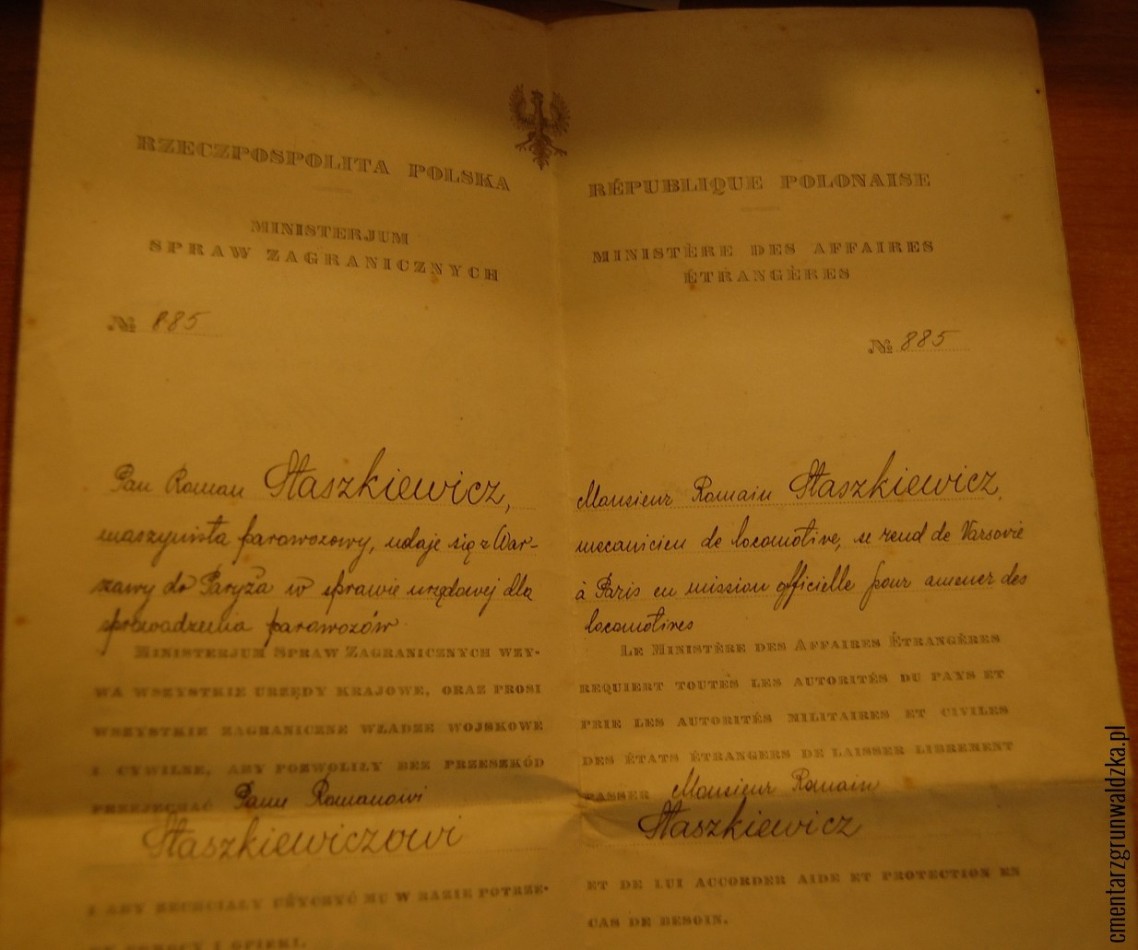 RZECZPOSPOLITA POLSKA
MINISTERJUM
SPRAW ZAGRANICZNYCH
№ 885
Pan Roman Staszkiewicz,
maszynista parowozowy, udaje się z War-
szawy do Paryża w sprawie urzędowej dla
sprowadzenia parowozów
MINISTERJUM SPRAW ZAGRANICZNYCH WZY-
WA WSZYSTKIE URZĘDY KRAJOWE, ORAZ PROSI
WSZYSTKIE ZAGRANICZNE WŁADZE WOJSKOWE
I CYWILNE, ABY POZWOLIŁY BEZ PRZESZKÓD
PRZEJECHAĆ Panu Romanowi
Staszkiewiczowi
I ABY ZECHCIAŁY UŻYCZYĆ MU W RAZIE POTRZE-
BY POMOCY I OPIEKI.
RÉPUBLIQUE POLONAISE
MINISTÈRE DES AFFAIRES
ÉTRANGÈRES
№ 885
Monsieur Romain Staszkiewicz,
mecanicien de locomotive, se rend de Varsovie
à Paris en mission officielle pour amener des
locomotives
LE MINISTÈRE DES AFFAIRES ÉTRANGÈRES
REQUIERT TOUTES LES AUTORITÉS DU PAYS ET
PRIE LES AUTORITÉS MILITAIRES ET CIVILES
DES ÉTATS ÉTRANGERS DE LAISSER LIBREMENT
PASSER Monsieur Romain
Staszkiewicz
ET DE LUI ACCORDER AIDE ET PROTECTION EN
CAS DE BESOIN.
cmentarzgrunwaldzka.pl